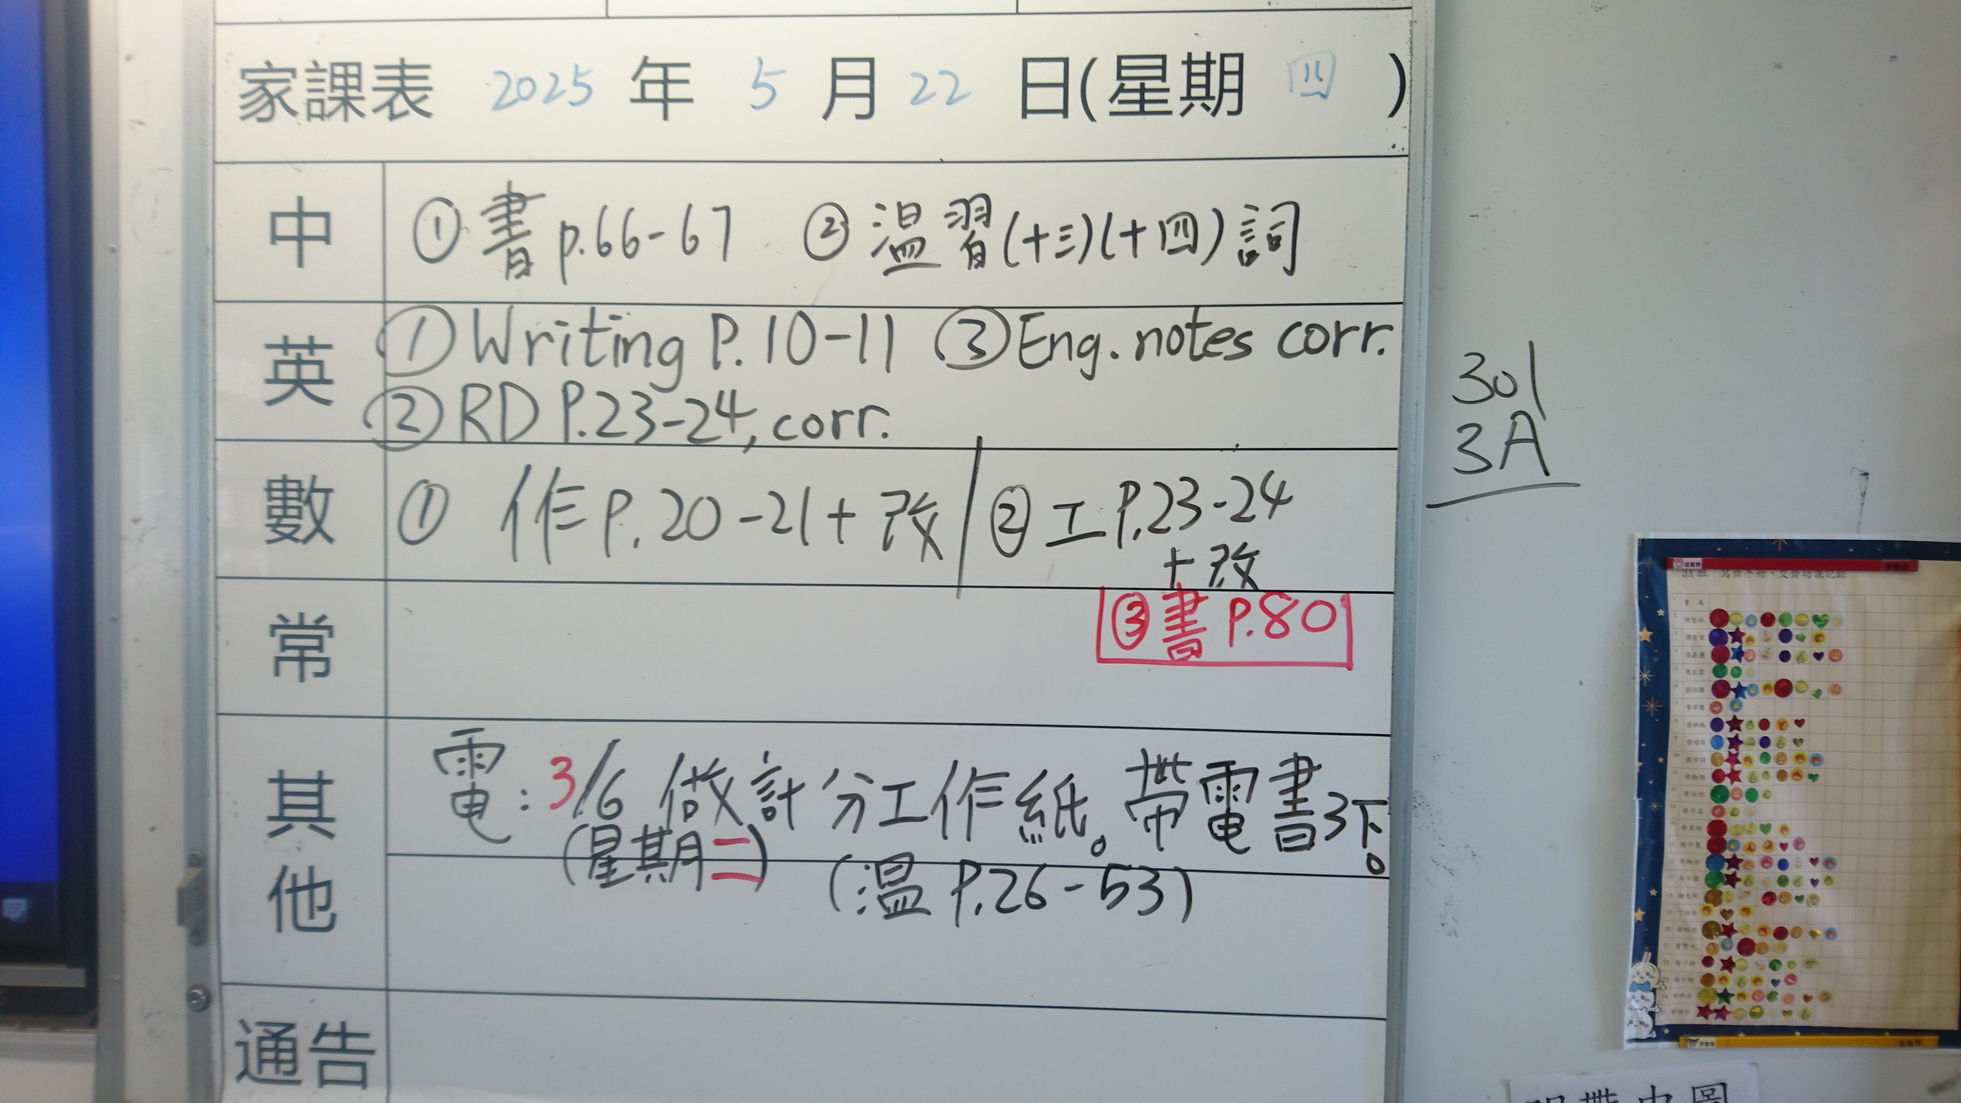 家課表 2025 年 5 月 22 日(星期 四 )
中 ①書 p.66-67 ②溫習(十三)(十四)詞
英 ①Writing P.10-11 ③Eng. notes corr.
②RD P.23-24, corr.
數 ① 作P.20-21+改 ②工P.23-24
+改
常 ③書 P.80
其他 電:3/6 做計分工作紙。帶電書3下。
(星期二) (溫 P.26-53)
通告
301
3A